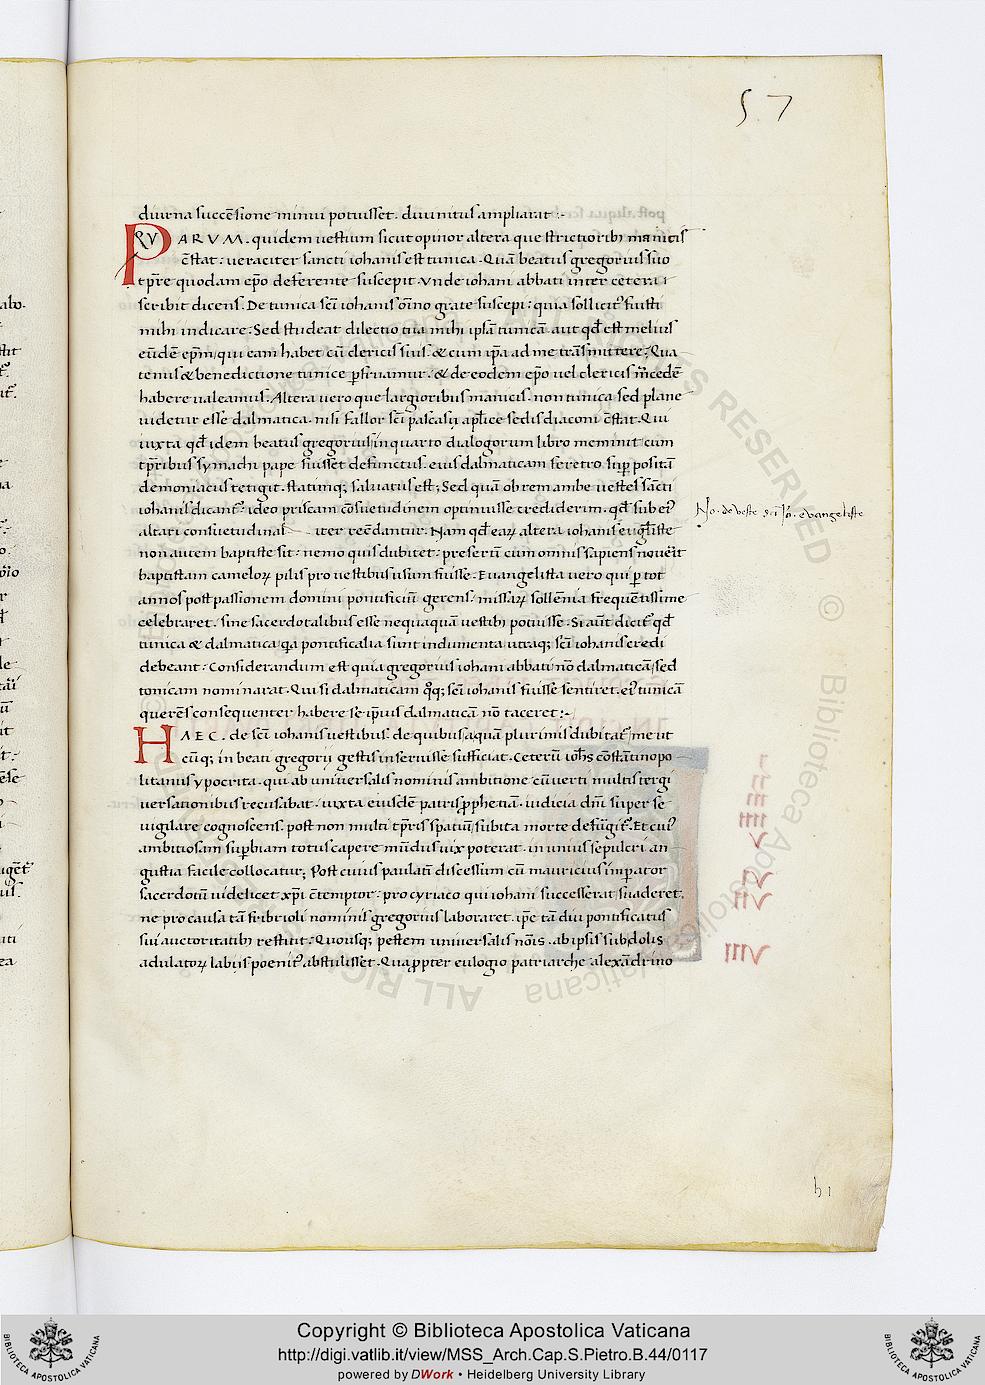 57
diurna succēsione minui potuisset. diuinitus ampliarat :-
PRVARVM. quidem uestium sicut opinor altera que strictiorib; manicis
c̄stat: ueraciter sancti iohanis est tunica. Quā beatus gregorius suo
tp̄re quodam ep̄o deferente suscepit. Vnde iohani abbati inter cetera:
scribit dicens. De tunica sc̄i iohanis om̄no grate suscepi: quia sollicitꝰ fuisti
mihi indicare: Sed studeat dilectio tua mihi ipsā tunicā aut qđ est melius
eūdē ep̄m, qui eam habet cū clericis suis. & cum ip̄a ad me trāsmittere: Qua
tenus & benedictione tunice ꝑfruamur: & de eodem ep̄o uel clericis m̄cedē
habere ualeamus. Altera uero que largioribus manicis. non tunica sed plane
uidetur esse dalmatica. nisi fallor sc̄i pascasij ap̄lice sedis diaconi c̄stat. Qui
iuxta qđ idem beatus gregorius in quarto dialogorum libro meminit cum
tp̄ribus symachi pape fuisset defunctus. eius dalmaticam feretro suꝑ positā
demoniacus tetigit. statimq; saluatus est; Sed quā ob rem ambe uestes sancti
iohanis dicantᷣ. ideo priscam cōsuetudinem optinuisse crediderim. qđ sub eiꝰ
altari consuetudinal iter recēdantur. Nam qđ eaꝝ altera iohanis euḡliste
non autem baptiste sit: nemo quis dubitet: presertī cum omnis sapiens nouerit
baptistam cameloꝝ pilis pro uestibus usum fuisse. Euangelista uero qui ꝑ tot
annos post passionem domini pontificiū gerens. missaꝝ sollēnia frequētissime
celebraret. sine sacerdotalibus esse nequaquā uestib; potuisse. Si aūt dicitᷣ qđ
tunica & dalmatica qa pontificalia sunt indumenta utraq; sc̄i iohanis credi
debeant: Considerandum est quia gregorius iohani abbati nō dalmaticā, sed
tonicam nominarat. Qui si dalmaticam qq; sc̄i iohanis fuisse sentiret. eiꝰ tunicā
querēs consequenter habere se ip̄ius dalmaticā nō taceret :-
HAEC. de sc̄i iohanis uestibus. de quibus a quā plurimis dubitatᷣ, me ut
cūq; in beati gregorij gestis inseruisse sufficiat. Ceterū ioh̄s cōstātinopo
litanus ypocrita. qui ab uniuersalis nominis ambitione cū uerti multis tergi
uersationibus recusabat. iuxta eiusdē patris ꝓphetiā. iudicia dn̄i super se
uigilare cognoscens. post non multi tp̄ris spatiū, subita morte defūgitᷣ. Et cuiꝰ
ambitiosam suꝑbiam totus capere mūdus uix poterat. in unius sepulcri an
gustia facile collocatur; Post cuius paulatī discessum cū mauricius imꝑator
sacerdotū uidelicet xp̄i c̄temptor: pro cyriaco qui iohani successerat, suaderet.
ne pro causa tā fribrioli nominis gregorius laboraret. ip̄e tā diu pontificatus
sui auctoritatib; restitit: Quousq; pestem uniuersalis nōis. ab ipsis subdolis
adulatoꝝ labiis poenitᷣ abstulisset. Quaꝓpter eulogio patriarche alexādrino
No. de ueste sci Io. euangeliste
h 1
ALL RIGHTS RESERVED
© Biblioteca Apostolica Vaticana
Copyright © Biblioteca Apostolica Vaticana
http://digi.vatlib.it/view/MSS_Arch.Cap.S.Pietro.B.44/0117
powered by DWork • Heidelberg University Library